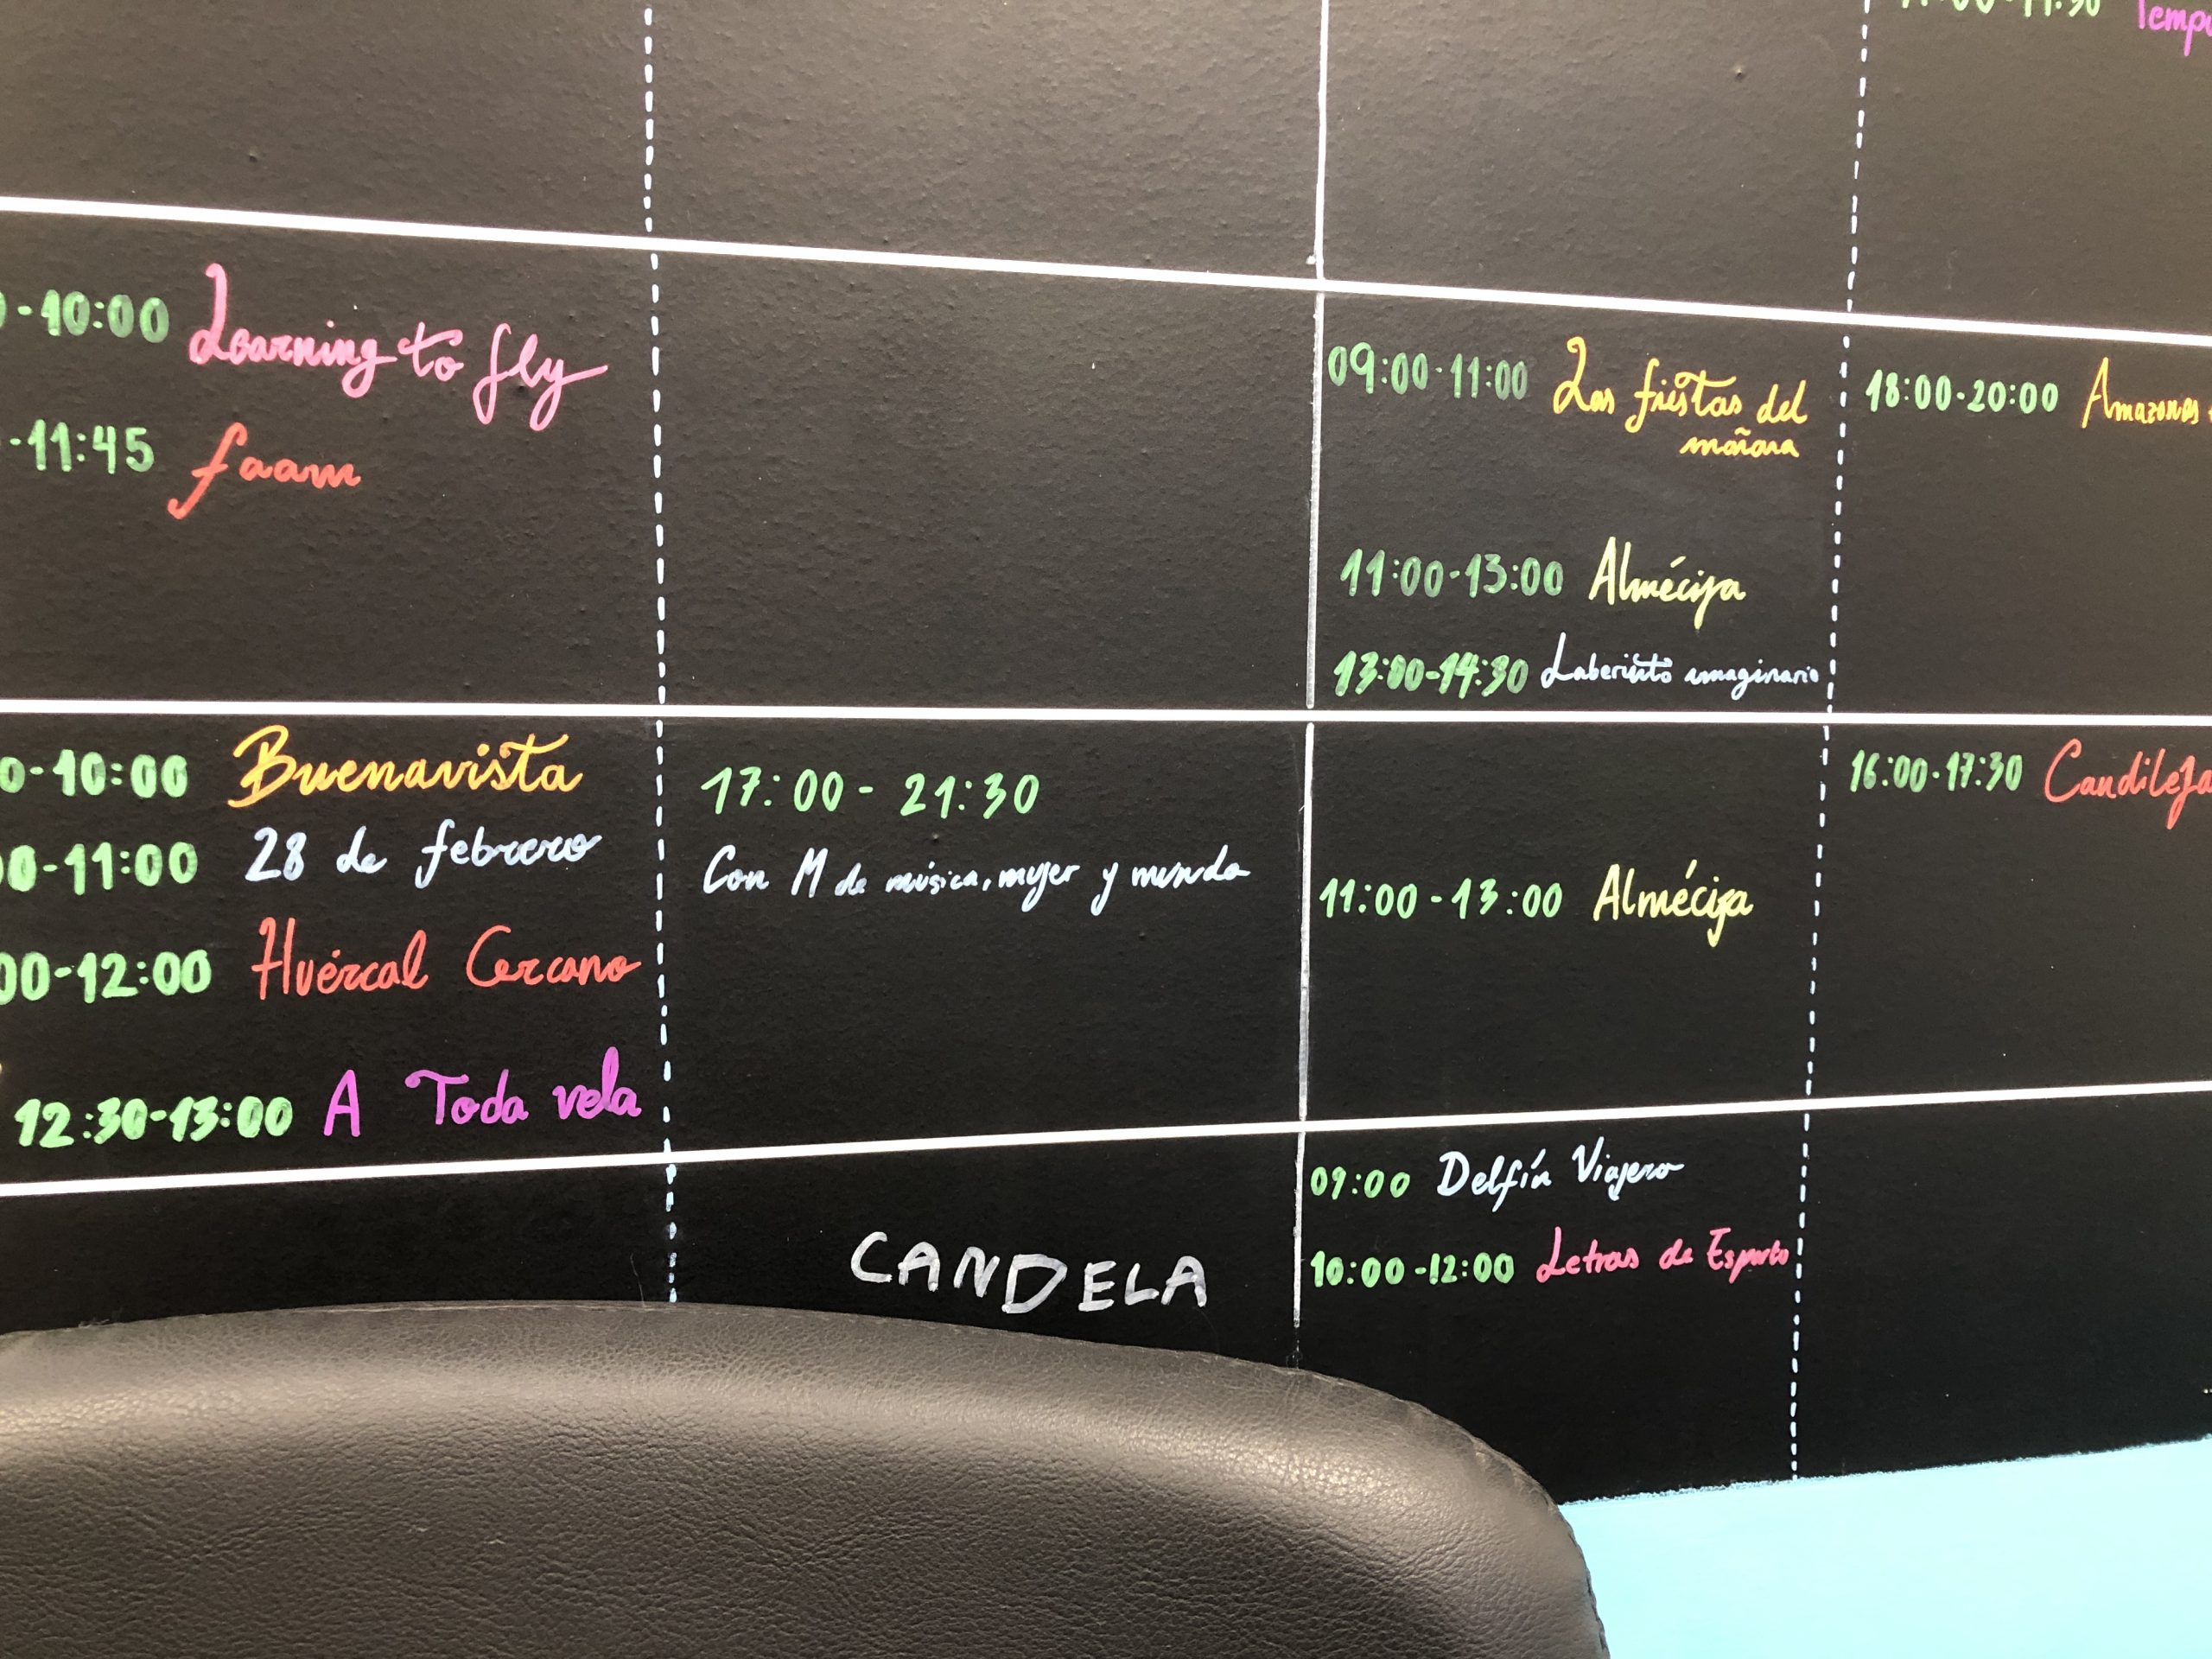 -11:30 Temp
-10:00 Learning to fly
-11:45 faam
09:00-11:00 Las fiestas del
mañana
11:00-13:00 Almécija
13:00-14:30 Laberinto imaginario
18:00-20:00 Amazonas
0-10:00 Buenavista
00-11:00 28 de febrero
00-12:00 Huércal Cercano
12:30-13:00 A Toda vela
17:00 - 21:30
Con M de música, mujer y mundo
11:00-13:00 Almécija
16:00-17:30 Candileja
CANDELA
09:00 Delfín Viajero
10:00-12:00 Letras de Esparto